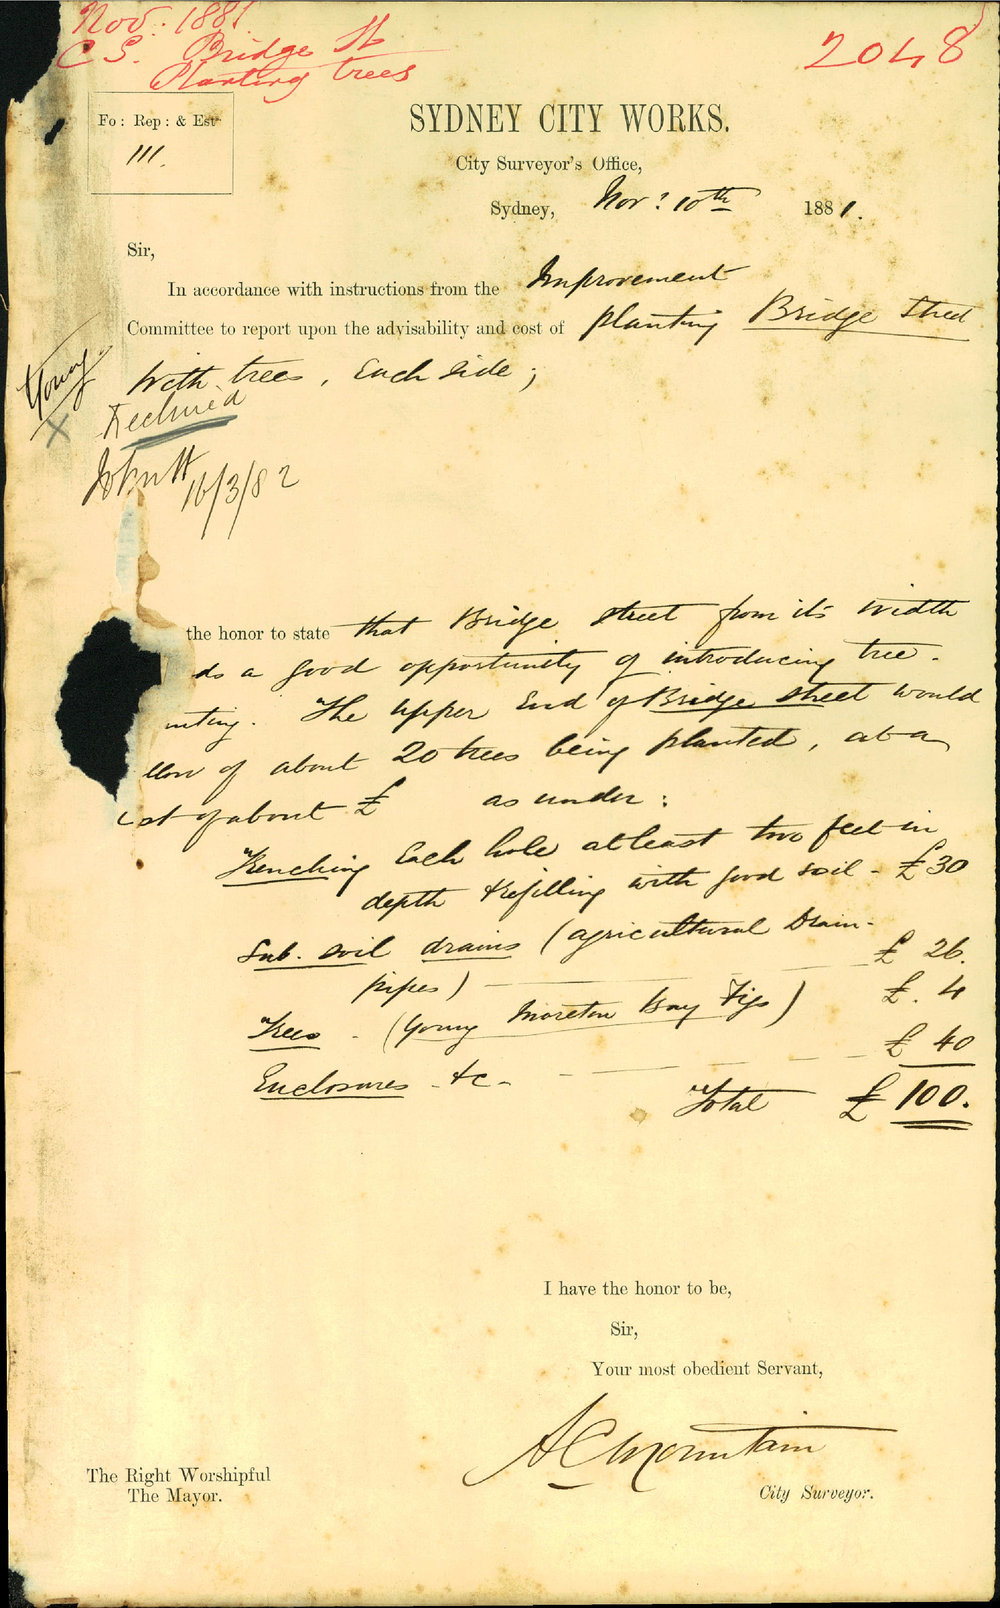 Nov. 1881
C S. Bridge St
Planting trees
2048
Fo: Rep: & Est
111.
SYDNEY CITY WORKS.
City Surveyor's Office,
Sydney, Nov: 10th 1881.
Sir,
In accordance with instructions from the Improvement
Committee to report upon the advisability and cost of planting Bridge Street
with trees, Each side;
Young
X
Declined
16/3/82
the honor to state that Bridge street from its width
ds a good opportunity of introducing tree-
nting. The upper End of Bridge street would
llow of about 20 trees being planted, at a
ost of about £ as under:
Trenching Each hole at least two feet in
depth & refilling with good soil - £30
Sub. soil drains (agricultural Drain-
pipes) £ 26.
Trees - (Young Moreton Bay Figs) £. 4
Enclosures - &c - £ 40
Total £ 100.
I have the honor to be,
Sir,
Your most obedient Servant,
A C Mountain
City Surveyor.
The Right Worshipful
The Mayor.